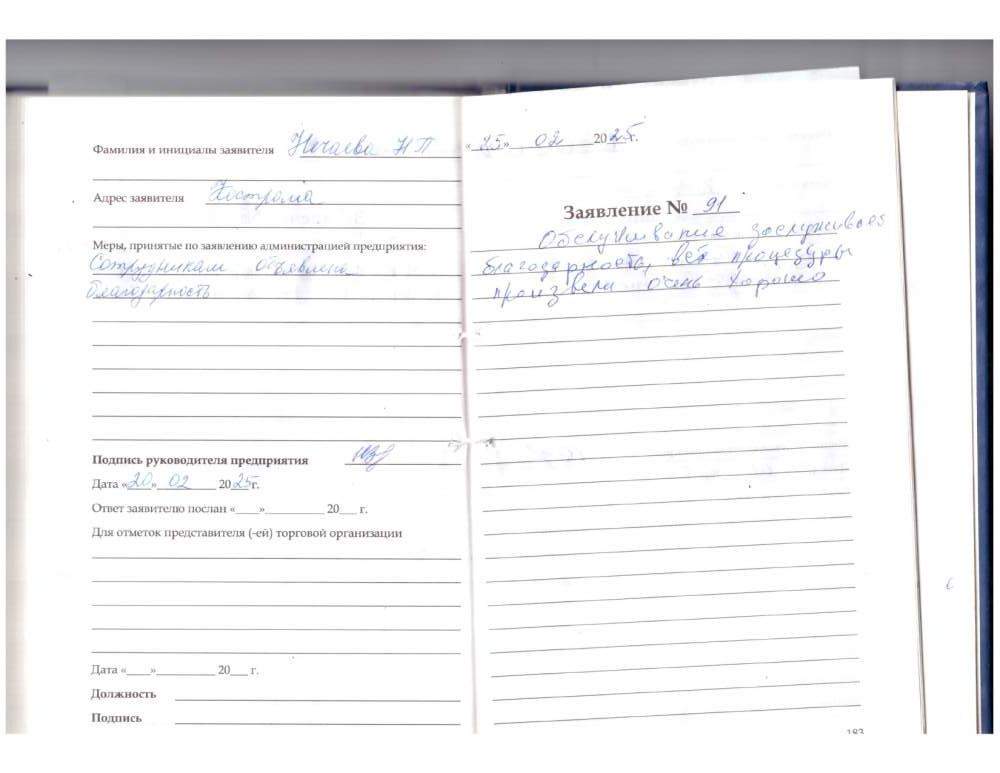 Фамилия и инициалы заявителя Нечаева Н П
Адрес заявителя Кострома
Меры, принятые по заявлению администрацией предприятия:
Сотрудникам объявлена
благодарность
Подпись руководителя предприятия
Дата «20» 02 2025г.
Ответ заявителю послан «___»__________ 20___ г.
Для отметок представителя (-ей) торговой организации
Дата «___»__________ 20___ г.
Должность
Подпись
«25» 02 2025г.
Заявление № 91
Обслуживание заслуживает
благодарность, все процедуры
произвели очень хорошо
183